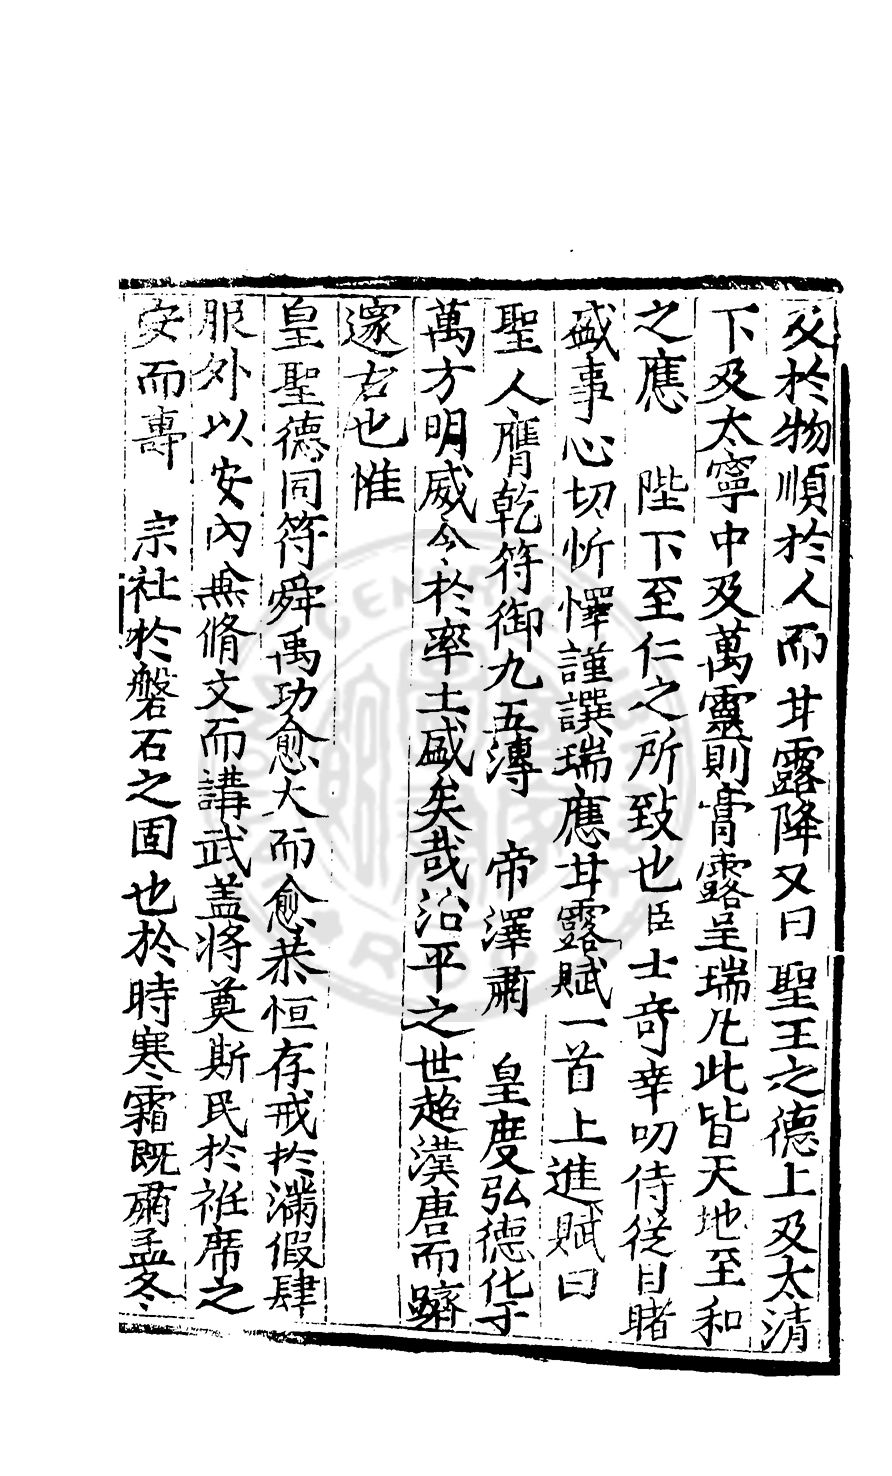 及於物順於人而甘露降又曰聖王之德上及太清
下及太寧中及萬靈則膏露呈瑞凡此皆天地至和
之應　陛下至仁之所致也臣士奇幸叨侍從日睹
盛事心切忻懌謹譔瑞應甘露賦一首上進賦曰
聖人膺乾符御九五溥　帝澤肅　皇度弘德化于
萬方明威令於率土盛矣哉治平之世超漢唐而躋
邃古也惟
皇聖德同符舜禹功愈大而愈恭恒存戒於滿假肆
服外以安內無脩文而講武盖将奠斯民於袵席之
安而壽　宗社於磐石之固也於時寒霜既肅孟冬